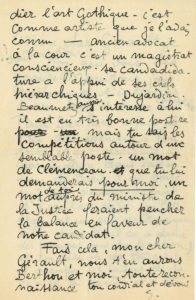 dier l'art Gothique - c'est
comme artiste que je l'avais
connu — ancien avocat
à la cour c'est un magistrat
consciencieux - sa candidature
ture a l'appui de ses chefs
hiérarchiques — Dujardin
Beaumetz s'intéresse à lui
il est en très bonne posture
mais tu sais les
compétitions autour d'une
semblable poste - un mot
de Clémenceau et que tu lui
demanderais pour moi un
mot auprès du ministre de
la Justice feraient pencher
la balance en faveur de
notre candidat.
Fais cela, mon cher
Géfault, nous t'en aurons
Berthou et moi toute recon-
naissance ton cordial et dévoué